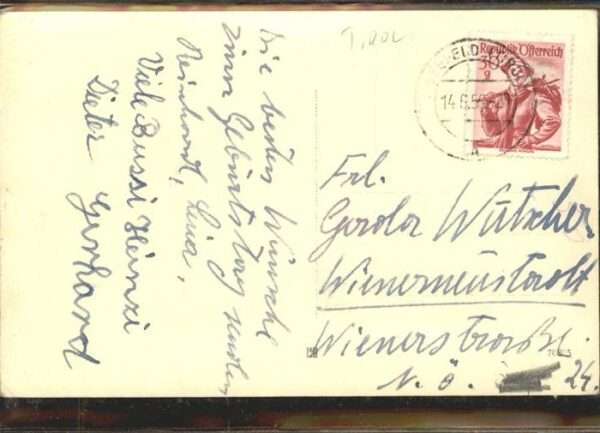 Die besten Wünsche
zum Geburtstag senden
Reinhard, Lina,
Viele Bussi Heinzi
Dieter Gerhard
Republik Österreich
30
g
14.6.5
Frl.
Gerda Wutscher
Wienerneustadt
Wienerstraße.
N.Ö. 24.